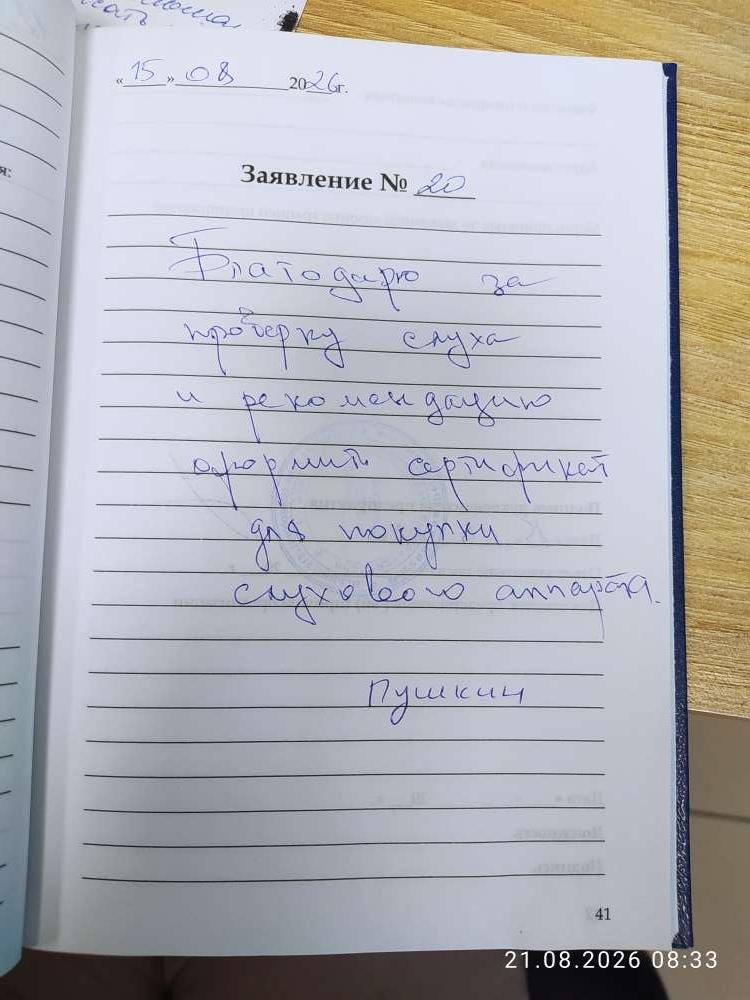 «15» 08 2026г.
Заявление № 20
Благодарю за
проверку слуха
и рекомендацию
оформить сертификат
для покупки
слухового аппарата.
Пушкин
41
21.08.2026 08:33